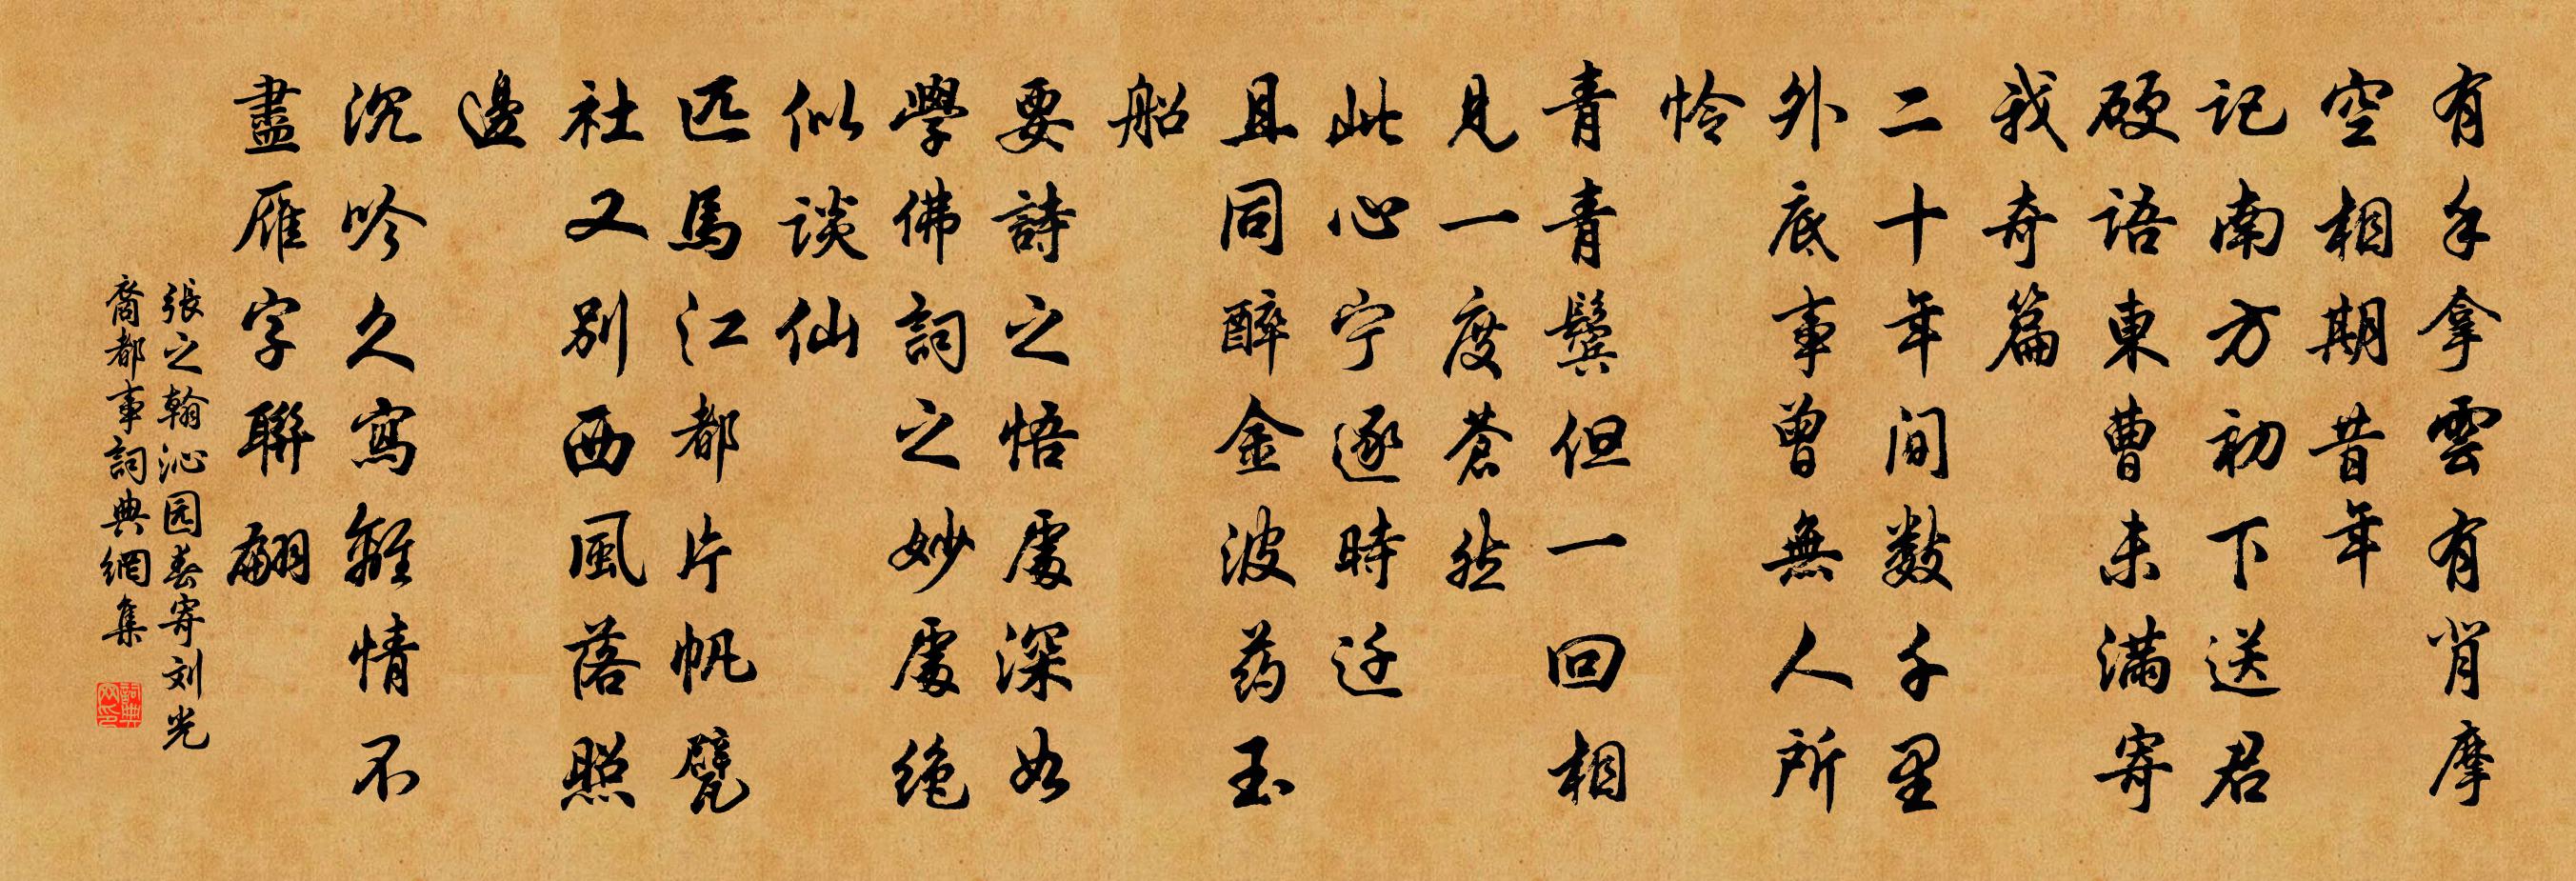 有手拿雲有肖摩
空相期昔年
記南方初下送君
硬語東曹未滿寄
我奇篇
二十年間数千里
外底事曾無人所
怜
青青鬓但一回相
見一度蒼然
此心宁逐時迁
且同醉金波药玉
船
要詩之悟處深如
學佛詞之妙處絶
似谈仙
匹馬江都片帆甓
社又別西風落照
邊
沉吟久寫離情不
盡雁字聯翩
張之翰沁园春寄刘光
裔都事詞典網集